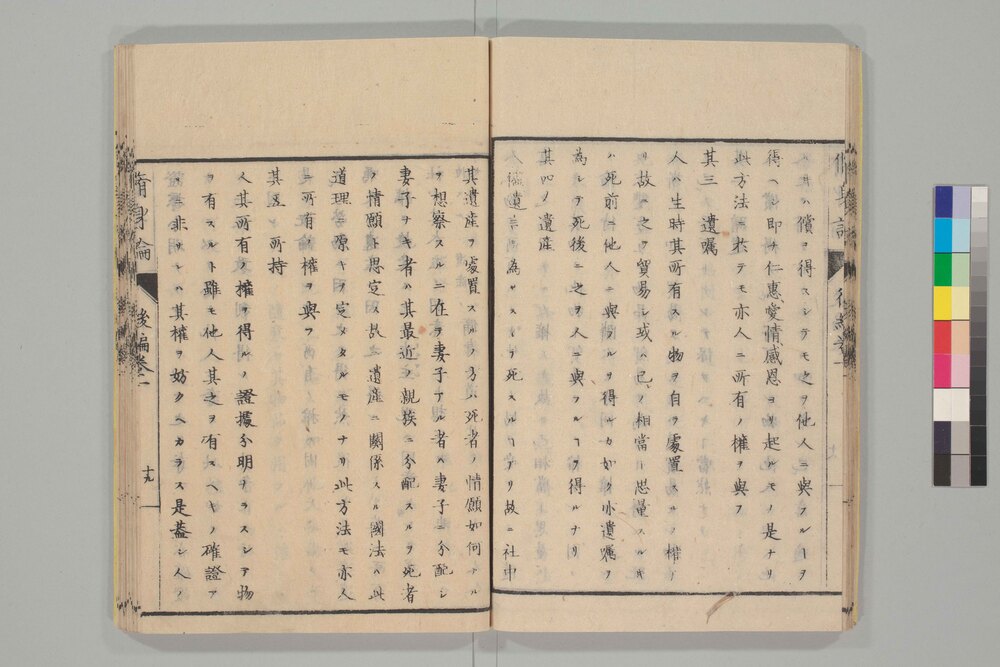 人其ハ償ヲ得スシテモ之ヲ他人ニ與フルヿヲ
得ヘシ即チ仁惠愛情感恩ヨリ起ルモノ是ナリ
此方法ニ於テモ亦人ニ所有ノ權ヲ與フ
其三ノ遺嘱
人ハ生時其所有スル物ヲ自ラ處置スルノ權ア
リ故ニ之ヲ貿易シ或ハ己ノ相當ト思量スルキ
ハ死前ニ他人ニ與フルヲ得ルカ如ク亦遺嘱ヲ
為シテ死後ニ之ヲ人ニ與フルヿヲ得ルナリ
其四ノ遺産
人遺言ヲ為サスシテ死スルヿアリ故ニ社中
其遺産ヲ處置スルノ方ハ死者ノ情願如何ナル
ヲ想察スルニ在ラ妻子アル者ハ妻子ニ分配シ
妻子ナキ者ハ其最近ノ親族ニ分配スルヲ死者
ノ情願ト思定ス故ニ遺産ニ關係スル國法ハ此
道理ニ原キテ定メタルモノナリ此方法モ亦人
ニ所有ノ權ヲ與フ
其五ノ所持
人其所有ノ權ヲ得ルノ證據分明ナラスシテ物
ヲ有スルト雖モ他人其之ヲ有スヘキノ確證ア
ルニ非サレハ其權ヲ妨クヘカラス是蓋シ人ノ
脩身論
後編卷二
十九